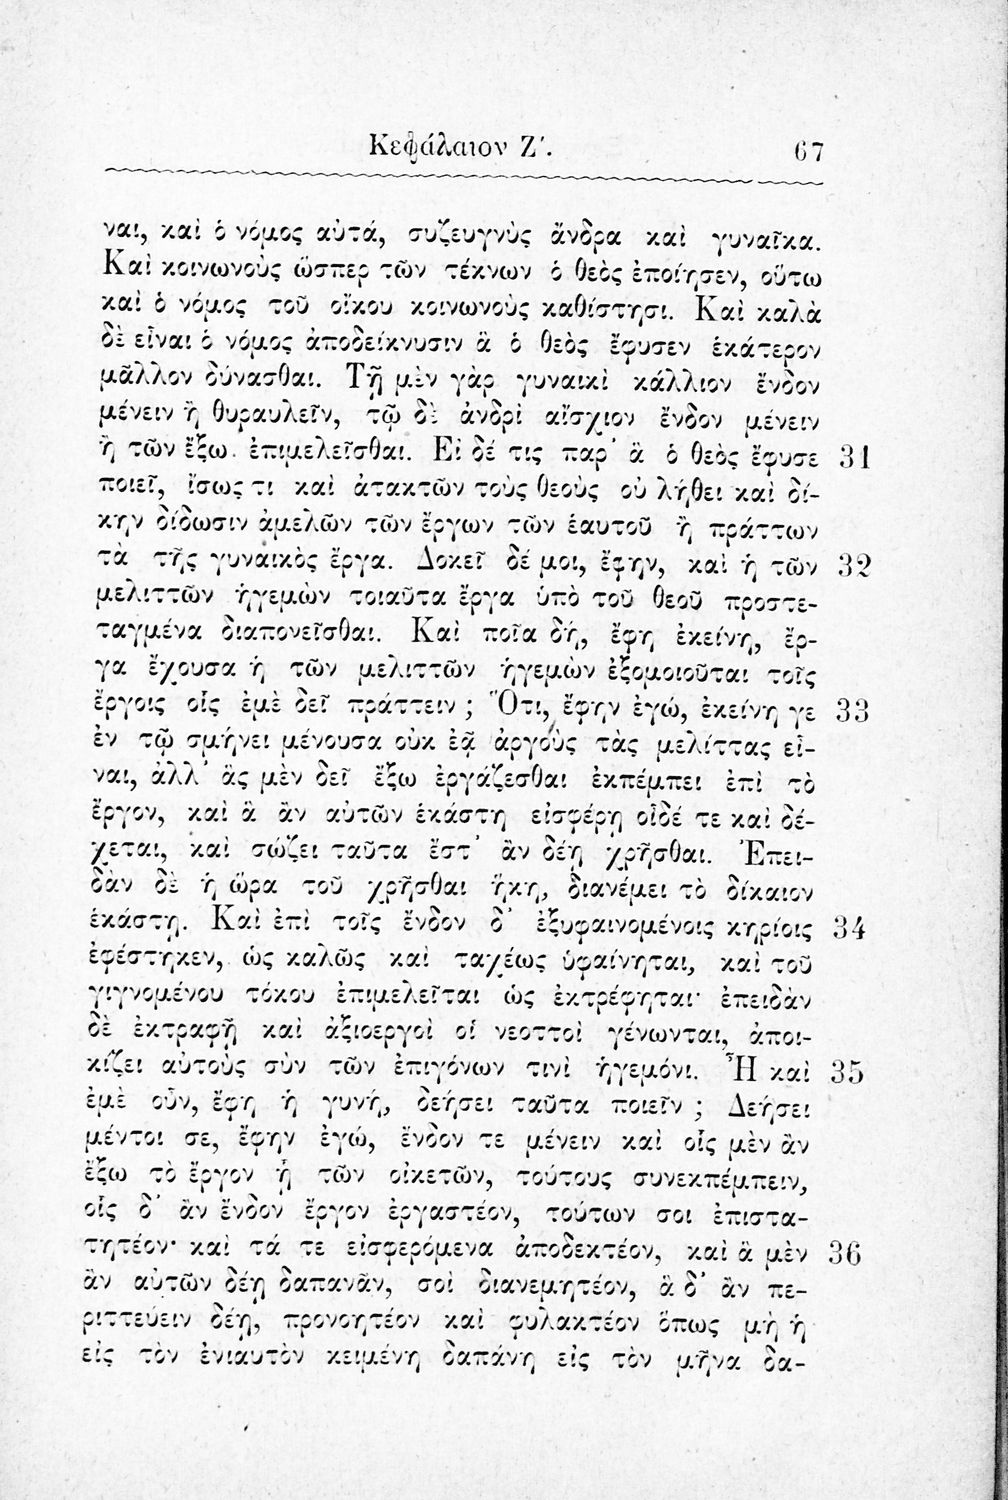 Κεφάλαιον Ζ΄. 67
ναι, καὶ ὁ νόμος αὐτά, συζευγνὺς ἄνδρα καὶ γυναῖκα.
Καὶ κοινωνοὺς ὥσπερ τῶν τέκνων ὁ θεὸς ἐποίησεν, οὕτω
καὶ ὁ νόμος τοῦ οἴκου κοινωνοὺς καθίστησι. Καὶ καλὰ
δὲ εἶναι ὁ νόμος ἀποδείκνυσιν ἃ ὁ θεὸς ἔφυσεν ἑκάτερον
μᾶλλον δύνασθαι. Τῇ μὲν γὰρ γυναικὶ κάλλιον ἔνδον
μένειν ἢ θυραυλεῖν, τῷ δὲ ἀνδρὶ αἴσχιον ἔνδον μένειν
ἢ τῶν ἔξω ἐπιμελεῖσθαι. Εἰ δέ τις παρ᾽ ἃ ὁ θεὸς ἔφυσε 31
ποιεῖ, ἴσως τι καὶ ἀτακτῶν τοὺς θεοὺς οὐ λήθει καὶ δί-
κην δίδωσιν ἀμελῶν τῶν ἔργων τῶν ἑαυτοῦ ἢ πράττων
τὰ τῆς γυναικὸς ἔργα. Δοκεῖ δέ μοι, ἔφην, καὶ ἡ τῶν 32
μελιττῶν ἡγεμὼν τοιαῦτα ἔργα ὑπὸ τοῦ θεοῦ προστε-
ταγμένα διαπονεῖσθαι. Καὶ ποῖα δή, ἔφη ἐκείνη, ἔρ-
γα ἔχουσα ἡ τῶν μελιττῶν ἡγεμὼν ἐξομοιοῦται τοῖς
ἔργοις οἷς ἐμὲ δεῖ πράττειν ; Ὅτι, ἔφην ἐγώ, ἐκείνη γε 33
ἐν τῷ σμήνει μένουσα οὐκ ἐᾷ ἀργοὺς τὰς μελίττας εἶ-
ναι, ἀλλ᾽ ἃς μὲν δεῖ ἔξω ἐργάζεσθαι ἐκπέμπει ἐπὶ τὸ
ἔργον, καὶ ἃ ἂν αὐτῶν ἑκάστη εἰσφέρῃ οἶδέ τε καὶ δέ-
χεται, καὶ σώζει ταῦτα ἔστ᾽ ἂν δέῃ χρῆσθαι. Ἐπει-
δὰν δὲ ἡ ὥρα τοῦ χρῆσθαι ἥκῃ, διανέμει τὸ δίκαιον
ἑκάστῃ. Καὶ ἐπὶ τοῖς ἔνδον δ᾽ ἐξυφαινομένοις κηρίοις 34
ἐφέστηκεν, ὡς καλῶς καὶ ταχέως ὑφαίνηται, καὶ τοῦ
γιγνομένου τόκου ἐπιμελεῖται ὡς ἐκτρέφηται· ἐπειδὰν
δὲ ἐκτραφῇ καὶ ἀξιοεργοὶ οἱ νεοττοὶ γένωνται, ἀποι-
κίζει αὐτοὺς σὺν τῶν ἐπιγόνων τινὶ ἡγεμόνι. Ἦ καὶ 35
ἐμὲ οὖν, ἔφη ἡ γυνή, δεήσει ταῦτα ποιεῖν ; Δεήσει
μέντοι σε, ἔφην ἐγώ, ἔνδον τε μένειν καὶ οἷς μὲν ἂν
ἔξω τὸ ἔργον ᾖ τῶν οἰκετῶν, τούτους συνεκπέμπειν,
οἷς δ᾽ ἂν ἔνδον ἔργον ἐργαστέον, τούτων σοι ἐπιστα-
τητέον· καὶ τά τε εἰσφερόμενα ἀποδεκτέον, καὶ ἃ μὲν 36
ἂν αὐτῶν δέῃ δαπανᾶν, σοὶ διανεμητέον, ἃ δ᾽ ἂν πε-
ριττεύειν δέῃ, προνοητέον καὶ φυλακτέον ὅπως μὴ ἡ
εἰς τὸν ἐνιαυτὸν κειμένη δαπάνη εἰς τὸν μῆνα δα-